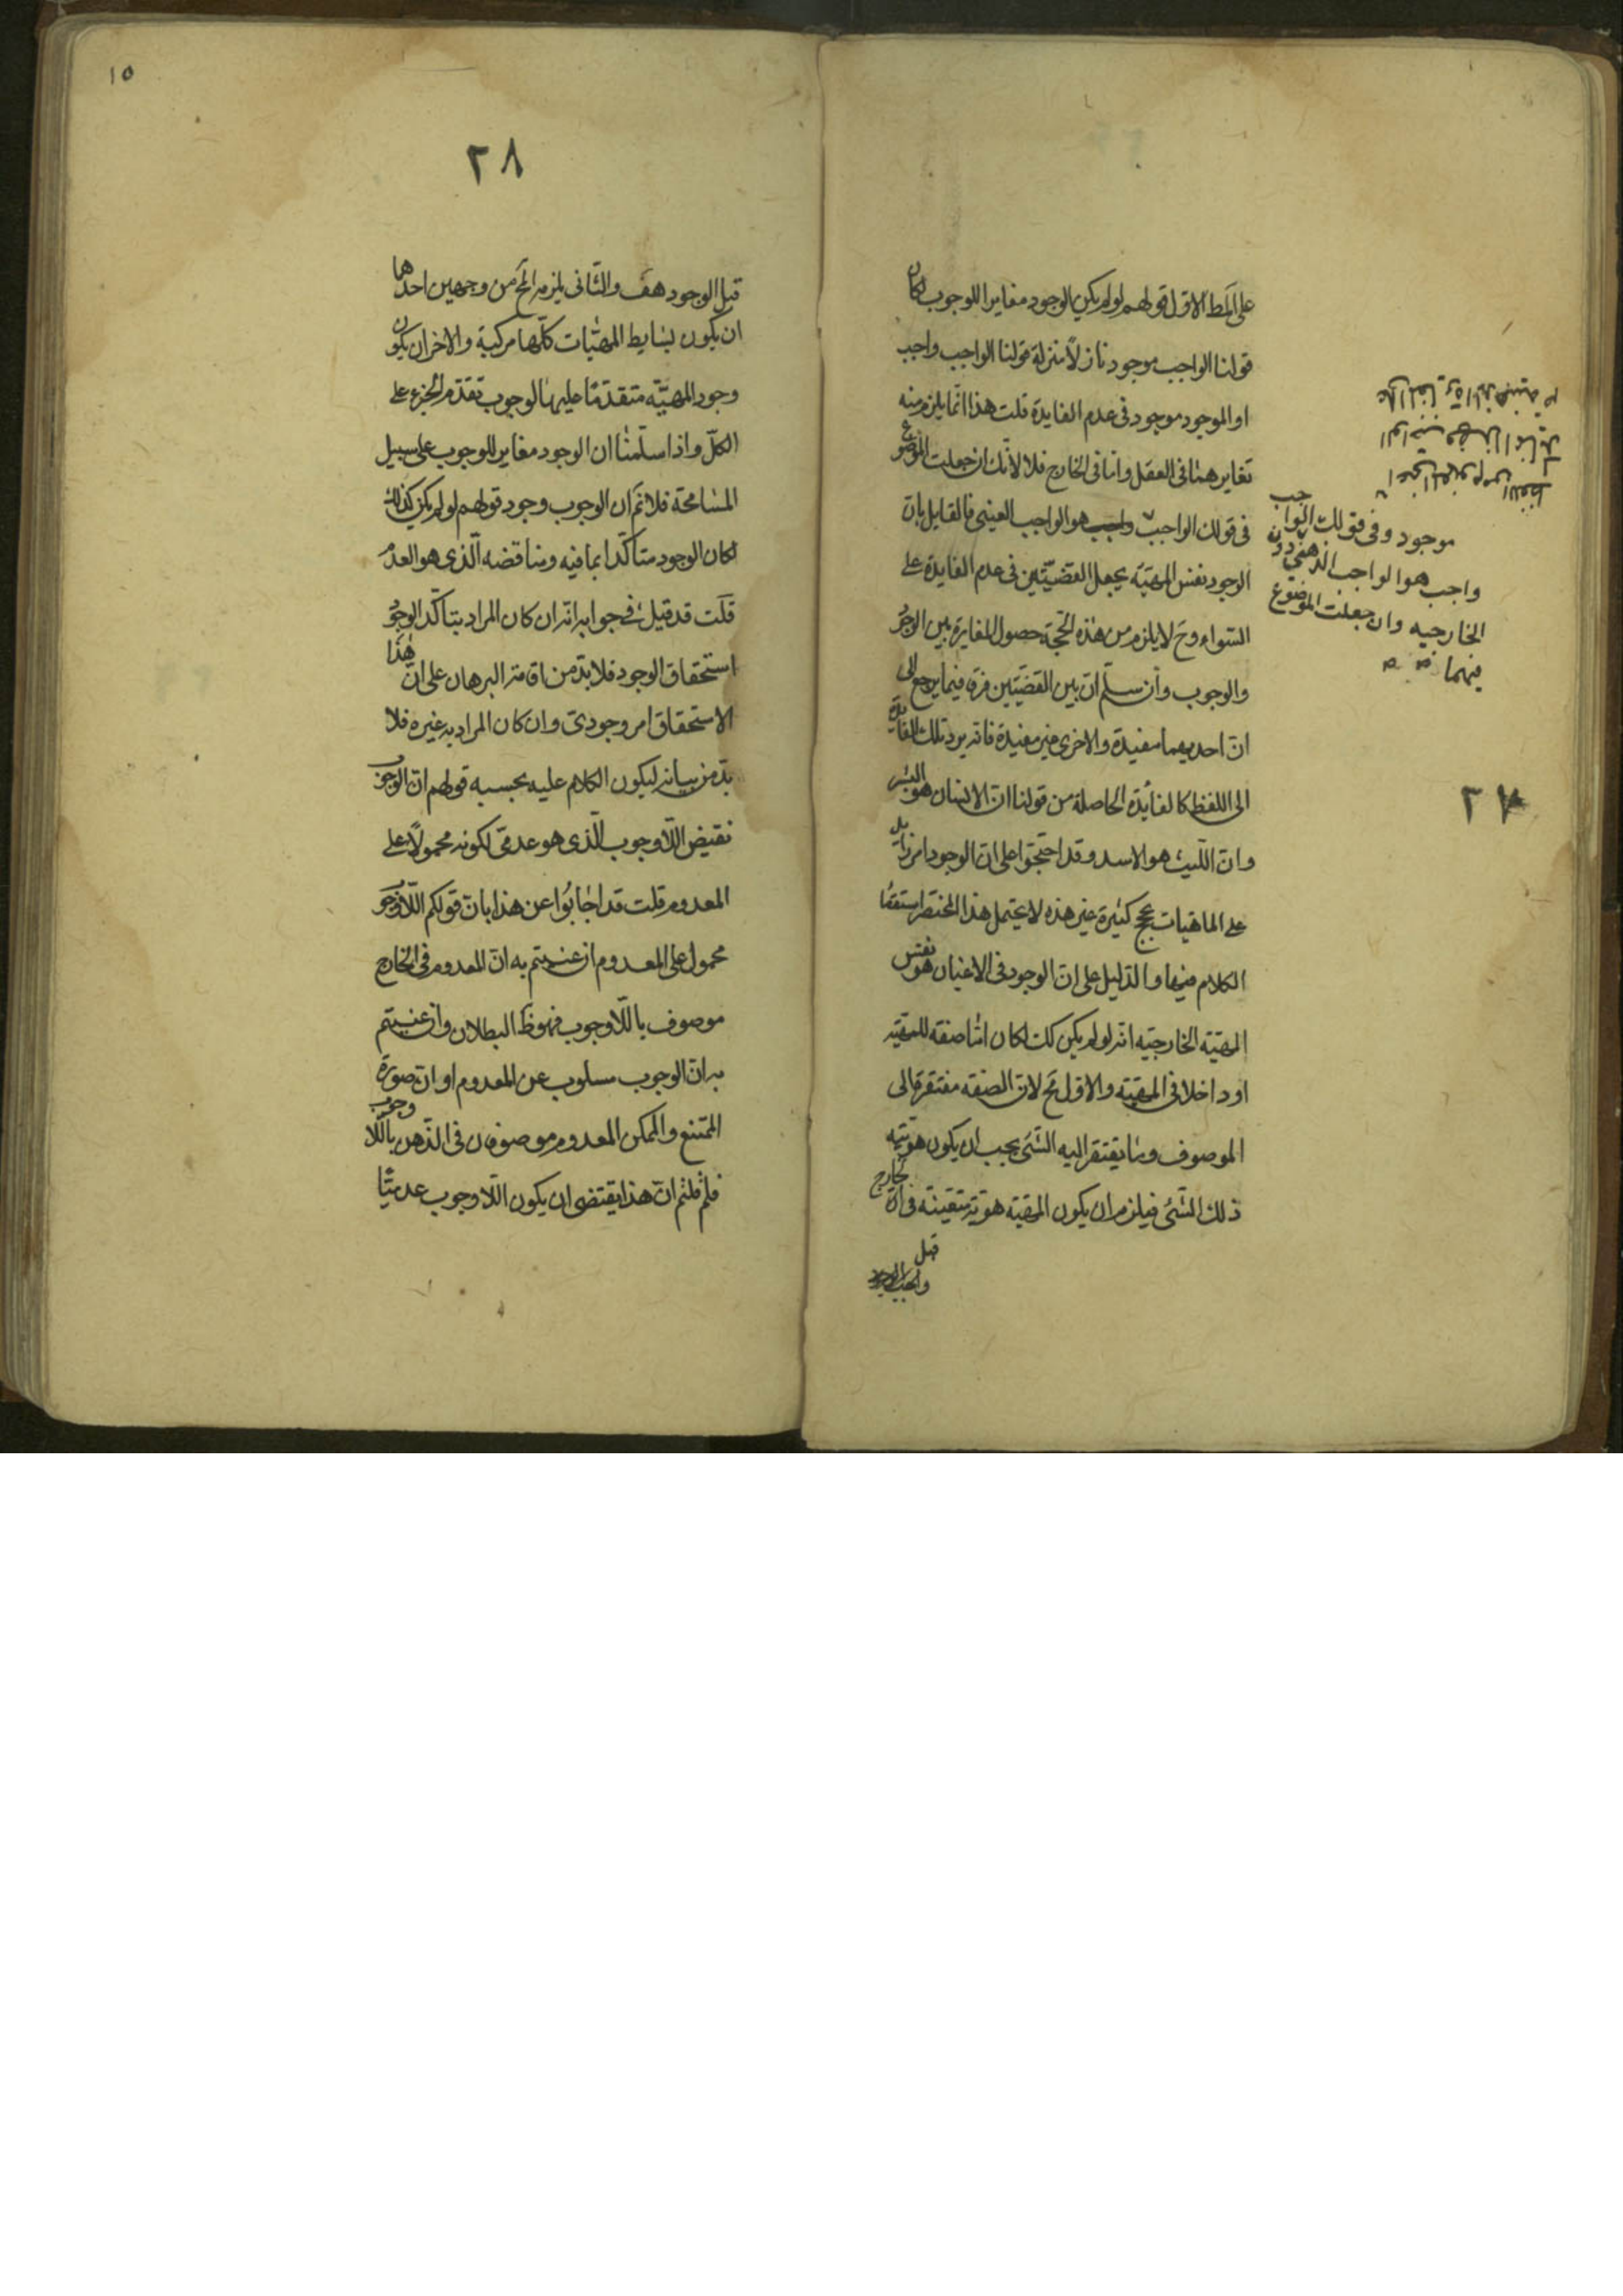 على المط الاول قولهم لو لم يكن الوجود مغايرا للوجوب لكان
قولنا الواجب موجود نازلاً منزلة قولنا الواجب واجب
او الموجود موجود فى عدم الفايدة قلت هذا انما يلزم منه
تغايرهما فى العقل واما فى الخارج فلا لانك ان جعلت الموضوع
فى قولك الواجب واجب هو الواجب العينى فالقايل بان
الوجود نفس المهيّة يجعل القضيّتين فى عدم الفايدة على
السواء وح لا يلزم من هذه الحجّة حصول المغايرة بين الوجود
والوجوب وان سلّم ان بين القضيّتين فرق فيما يرجع الى
ان احديهما مفيدة والاخرى غير مفيدة فانه يرد تلك الفايدة
الى اللفظ كالفائدة الحاصلة من قولنا ان الانسان هو البشر
وان الليث هو الاسد وقد احتجوا على ان الوجود امر زايد
على الماهيات بحجج كثيرة غير هذه لا يحتمل هذا المختصر استقصا
الكلام فيها والدليل على ان الوجود فى الاعيان هو نفس
المهيّة الخارجيّه انه لو لم يكن كك لكان اما صفة للمهيّة
او داخلا فى المهيّة والاول مح لان الصفه مفتقرة الى
الموصوف وما يفتقر اليه الشئ يجب ان يكون هويّته
ذلك الشئ فيلزم ان يكون المهيّة هويّة متعيّنة فى الخارج
قبل
موجود وفى قولك الواجب
واجب هو الواجب الذهنى دون
الخارجيه وان جعلت الموضوع
فيهما
٢٧
١٥
٢٨
قبل الوجود هف والثانى يلزمه المح من وجهين احدهما
ان يكون بسايط المهيّات كلّها مركبة والاخر ان يكون
وجود المهيّة متقدّمًا عليها لوجوب تقدّم الجزء على
الكلّ واذا سلّمنا ان الوجود مغاير للوجوب على سبيل
المسامحة فلا نم ان الوجوب وجود قولهم لو لم يكن كذلك
لكان الوجود متاكّدا بما فيه ومناقضه الّذى هو العدم
قلت قد قيل فى جوابه انه ان كان المراد بتاكّد الوجود
استحقاق الوجود فلا بدّ من اقامة البرهان على ان هذا
الاستحقاق امر وجودىّ وان كان المراد به غيره فلا
بدّ من بيانه ليكون الكلام عليه بحسبه قولهم ان الوجوب
نقيض اللّاوجوب الّذى هو عدمىّ لكونه محمولاً على
المعدوم قلت قد اجابوا عن هذا بان قولكم اللّاوجوب
محمول على المعدوم ان عنيتم به ان المعدوم فى الخارج
موصوف باللّاوجوب فهو ظ البطلان وان عنيتم
به ان الوجوب مسلوب عن المعدوم او ان صورة
الممتنع والممكن المعدوم موصوفان فى الذّهن باللّاوجوب
فلم قلتم ان هذا يقتضى ان يكون اللّاوجوب عدميًّا